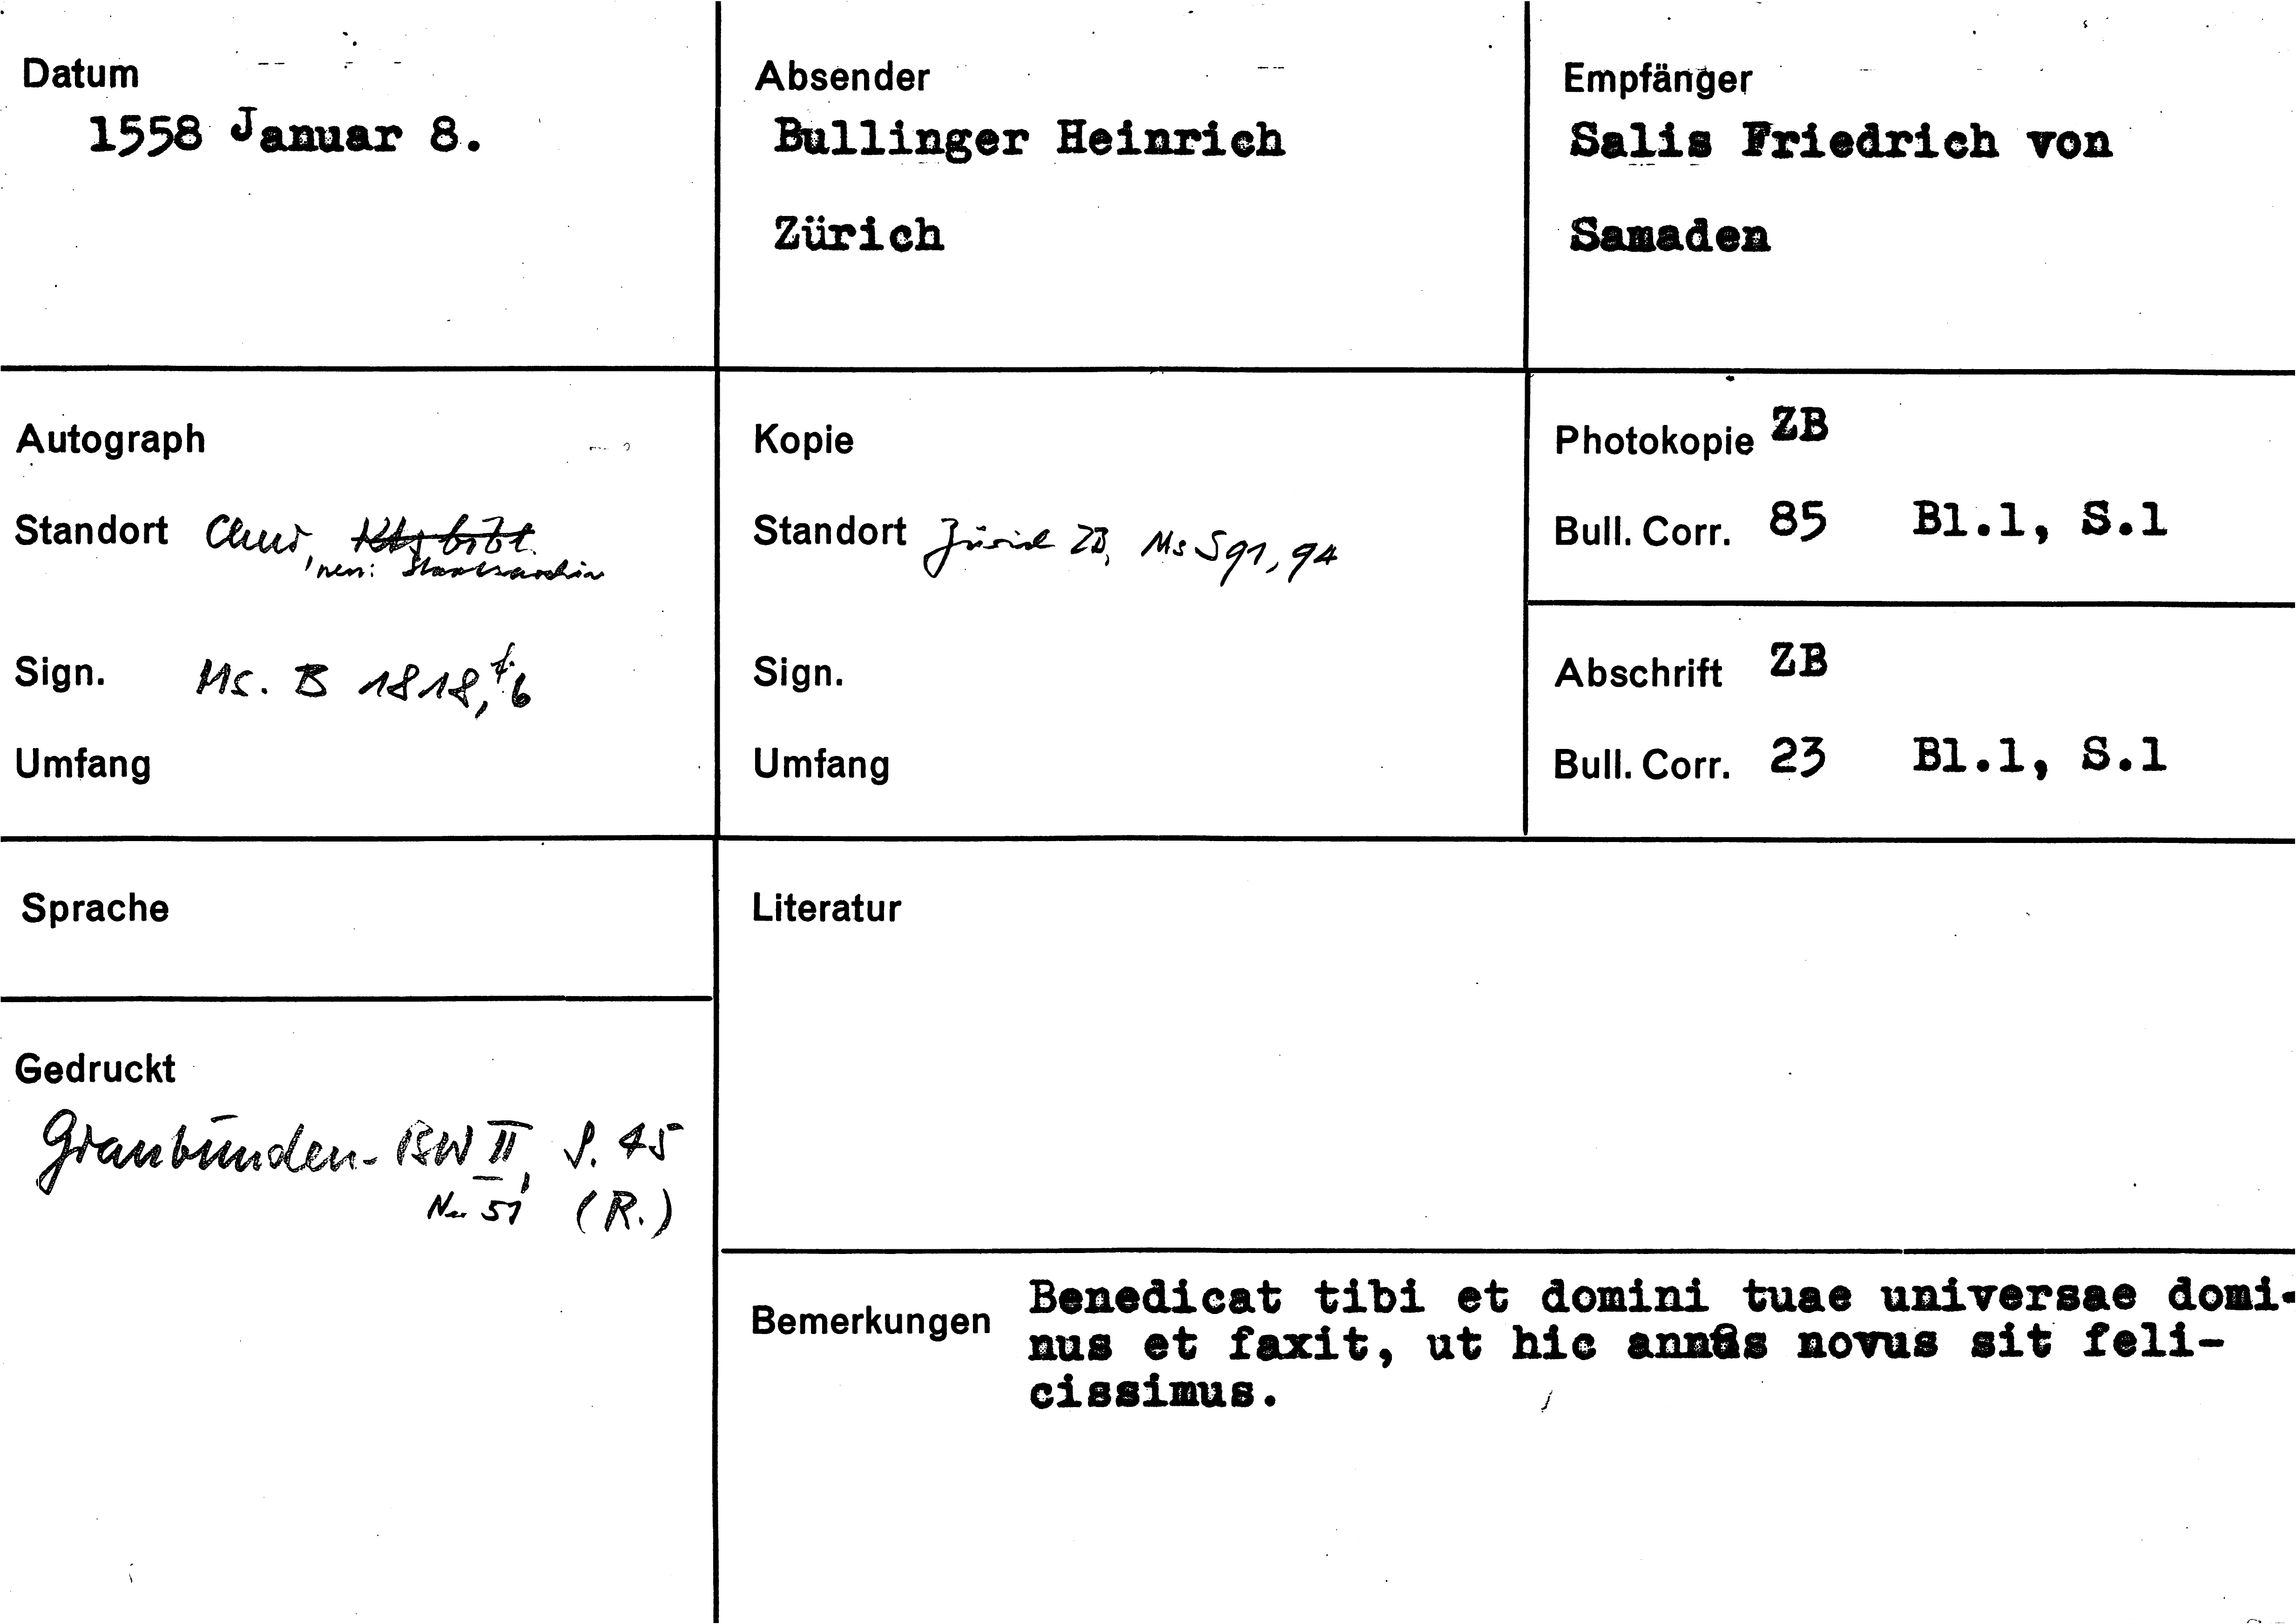 Datum
1558 Januar 8.
Absender
Bullinger Heinrich
Zürich
Empfänger
Salis Friedrich von
Samaden
Autograph
Standort Chur, Ktsbibt.
neu: Staatsarchiv
Sign. Ms. B 1818, f. 6
Umfang
Kopie
Standort Zürich ZB, Ms S 91, 94
Sign.
Umfang
Photokopie ZB
Bull. Corr. 85 Bl.1, S.1
Abschrift ZB
Bull. Corr. 23 Bl.1, S.1
Sprache
Gedruckt
Graubünden-BW II, S. 45
Nr 51 (R.)
Literatur
Bemerkungen
Benedicat tibi et domini tuae universae domi-
nus et faxit, ut hic annus novus sit feli-
cissimus.